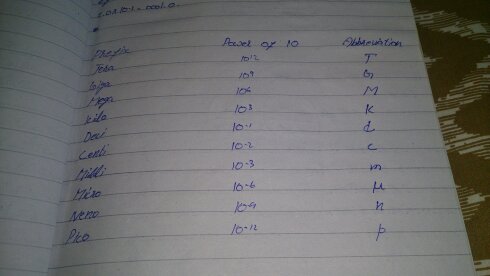 Prefix Power of 10 Abbreviation
Tera 10^12 T
Giga 10^9 G
Mega 10^6 M
kilo 10^3 k
Deci 10^-1 d
Centi 10^-2 c
Milli 10^-3 m
Micro 10^-6 μ
Nano 10^-9 n
Pico 10^-12 p